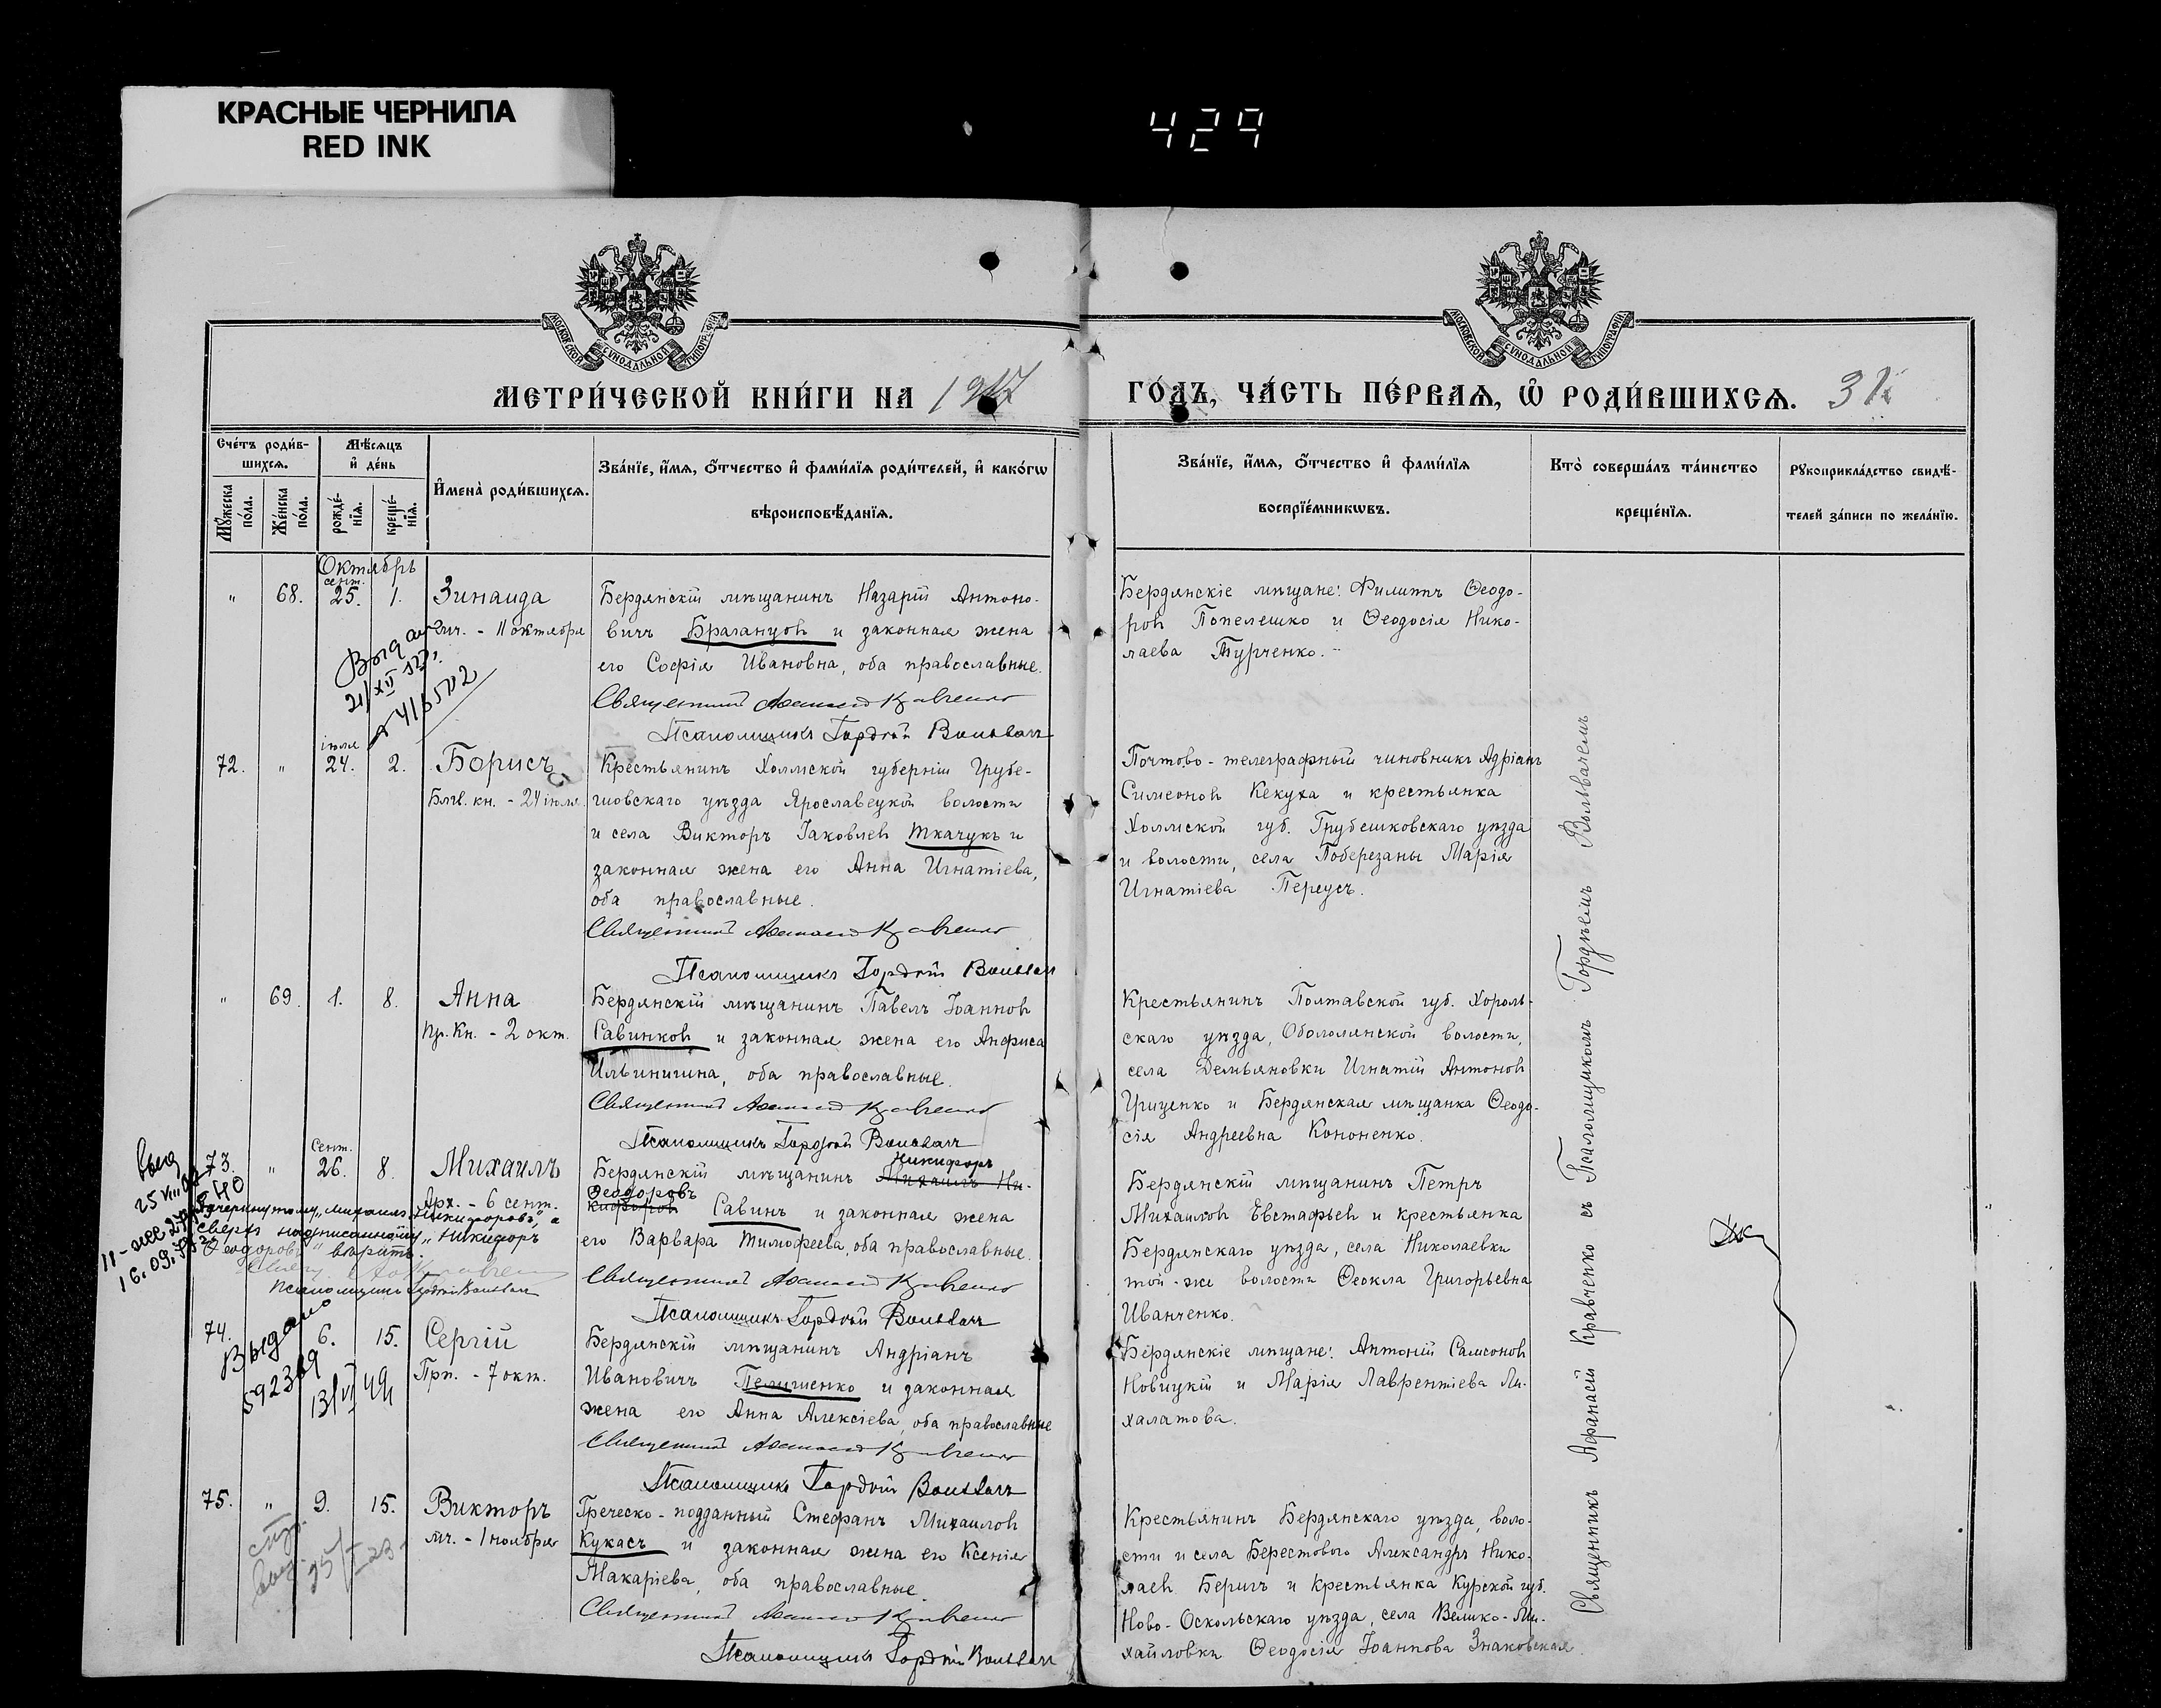 КРАСНЫЕ ЧЕРНИЛА
RED INK
429
МОСКОВСКОЙ СѴНОДАЛЬНОЙ ТИПОГРАФІИ
МОСКОВСКОЙ СѴНОДАЛЬНОЙ ТИПОГРАФІИ
МЕТРИ́ЧЕСКОЙ КНИ́ГИ НА 1917
ГО́ДЪ, ЧА́СТЬ ПЕ́РВАѦ, Ѡ҆ РОДИ́ВШИХСѦ.
Сче́тъ роди́в-
шихсѧ.
Мꙋ́жеска по́ла.
Же́нска по́ла.
Мѣ́сяцъ
и҆ де́нь
рожде́-
нїѧ.
креще́-
нїѧ.
И҆мена̀ роди́вшихсѧ.
Зва́нїе, и҆́мѧ, ѻ҆́тчество и҆ фами́лїѧ роди́телей, и҆ како́гѡ
вѣроисповѣ́данїѧ.
Зва́нїе, и҆́мѧ, ѻ҆́тчество и҆ фами́лїѧ
воспрїе́мникѡвъ.
Кто̀ соверша́лъ та́инство
креще́нїѧ.
Рꙋкоприкла́дство свидѣ́-
телей за́писи по жела́нїю.
Октябрь
" 68. сент. 25. 1. Зинаида
мч. - 11 октября
Бердянскій мѣщанинъ Назарій Антоно-
вичъ Браганцов и законная жена
его Софія Ивановна, оба православные.
Священник Афанасій Кравченко
Псаломщикъ Гордій
Бердянскіе мѣщане: Филиппъ Ѳеодо-
ров Попелешко и Ѳеодосія Нико-
лаева Турченко.
72. " іюля 24. 2. Борисъ
Блгв. кн. - 24 іюля.
Крестьянинъ Холмской губерніи Грубе-
шовскаго уѣзда Ярославецкой волости
и села Викторъ Іаковлев Ткачукъ и
законная жена его Анна Игнатіева,
оба православные.
Священник Афанасій Кравченко
Псаломщикъ Гордій
Почтово-телеграфный чиновникъ Адріанъ
Симеонов Кекуха и крестьянка
Холмской губ. Грубешковскаго уѣзда
и волости, села Поберезаны Марія
Игнатіева Переусъ.
" 69. 1. 8. Анна
Пр. Кн. - 2 окт.
Бердянскій мѣщанинъ Павелъ Іоаннов
Савинков и законная жена его Анфиса
Ильинична, оба православные.
Священник Афанасій Кравченко
Псаломщикъ Гордій
Крестьянинъ Полтавской губ. Хороль-
скаго уѣзда, Оболонянской волости,
села Демьяновки Игнатій Антонов
Гриценко и Бердянская мѣщанка Ѳеодо-
сія Андреевна Кононенко.
73. " Сент. 26. 8. Михаилъ
Арх. - 6 сент.
Бердянскій мѣщанинъ Михаилъ Ни- Никифоръ
кифоров Ѳеодоровъ Савинъ и законная жена
его Варвара Тимофеева, оба православные.
Священник Афанасій Кравченко
Псаломщикъ Гордій
25 VIII
16.09.
зачеркнутому "Михаилъ Никифоровъ", а
сверх надписанному "Никифоръ
Ѳеодоровъ" вѣрить.
Псаломщикъ Гордій
Бердянскій мѣщанинъ Петръ
Михаилов Евстафьев и крестьянка
Бердянскаго уѣзда, села Николаевки
той-же волости Ѳеокла Григорьевна
Иванченко.
74. 6. 15. Сергій
Прп. - 7 окт.
Выдано
592369
13/VI 49
Бердянскій мѣщанинъ Андріанъ
Ивановичъ Пелишенко и законная
жена его Анна Алексіева, оба православные
Священник Афанасій Кравченко
Псаломщикъ Гордій
Бердянскіе мѣщане: Антоній Самсонов
Новицкій и Марія Лаврентіева Ли-
халатова.
75. " 9. 15. Викторъ
мч. - 1 ноября
25/I 23
Греческо-подданный Стефанъ Михаилов
Кукасъ и законная жена его Ксенія
Макаріева, оба православные.
Священник Афанасій Кравченко
Псаломщикъ Гордій
Крестьянинъ Бердянскаго уѣзда, воло-
сти и села Берестового Александръ Нико-
лаев Беричъ и крестьянка Курской губ.
Ново-Оскольскаго уѣзда, села Велико-Ми-
хайловки Ѳеодосія Іоаннова Знаковская
Священникъ Афанасій Кравченко съ Псаломщикомъ Гордѣемъ